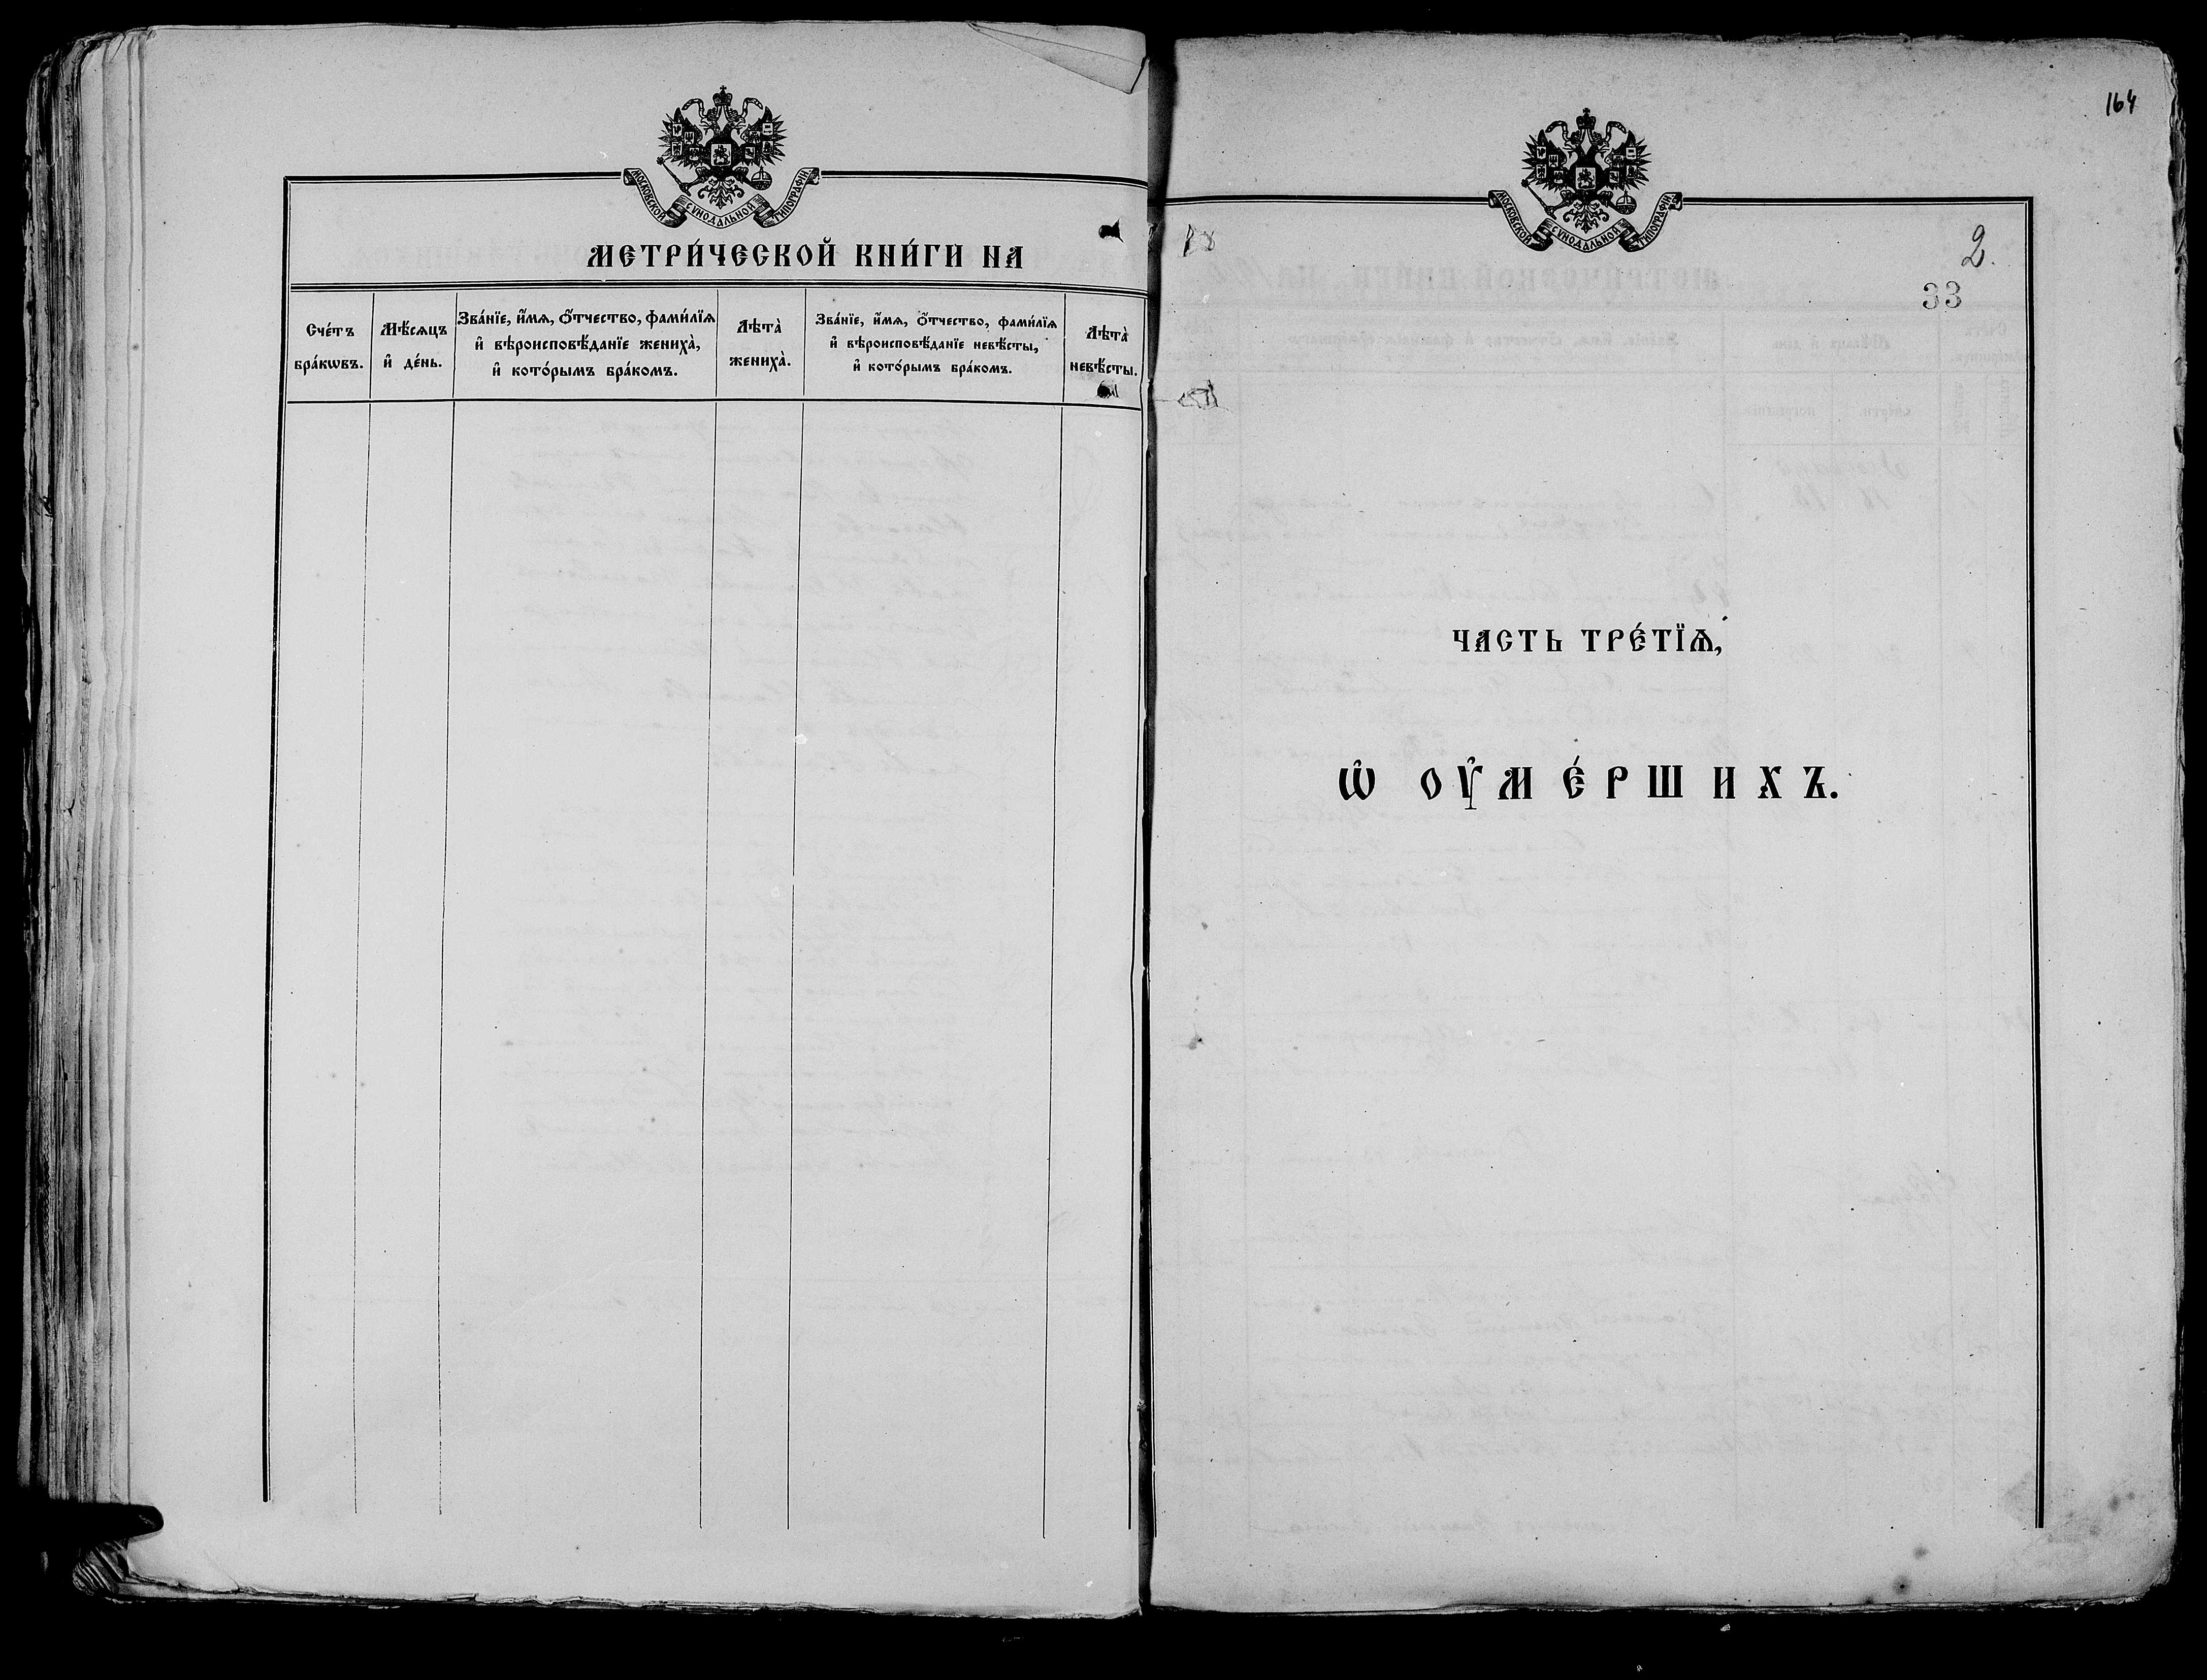 МОСКОВСКОЙ СѴНОДАЛЬНОЙ ТИПОГРАФІИ
МЕТРИ́ЧЕСКОЙ КНИ́ГИ НА
Сче́тъ
бра́кѡвъ.
Мѣ́сяцъ
и҆ де́нь.
Зва́нїе, и҆́мѧ, ѻ҆́тчество, фами́лїѧ
и҆ вѣроисповѣ́данїе жениха̀,
и҆ кото́рымъ бра́комъ.
Лѣта̀
жениха̀.
Зва́нїе, и҆́мѧ, ѻ҆́тчество, фами́лїѧ
и҆ вѣроисповѣ́данїе невѣ́сты,
и҆ кото́рымъ бра́комъ.
Лѣта̀
невѣ́сты.
164
МОСКОВСКОЙ СѴНОДАЛЬНОЙ ТИПОГРАФІИ
2.
33
ЧАСТЬ ТРЕ́ТЇѦ,
Ѡ҆ ОУ҆МЕ́РШИХЪ.